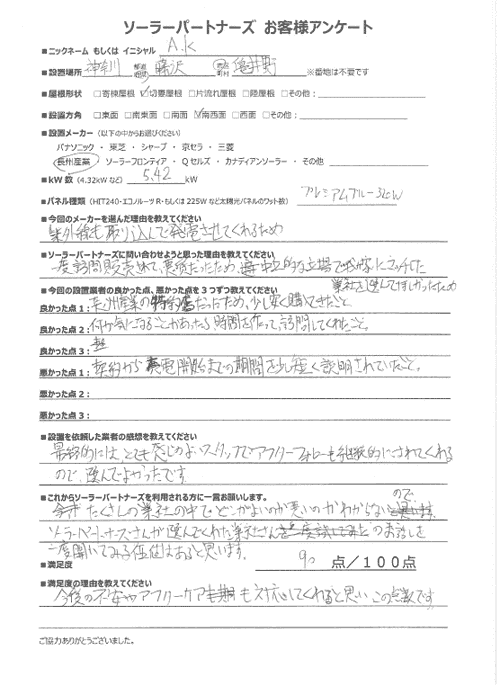 ソーラーパートナーズ お客様アンケート
■ニックネーム もしくは イニシャル A.K
■設置場所 神奈川 都道府県 藤沢 市 亀井野 ※番地は不要です
■屋根形状 □寄棟屋根 ☑切妻屋根 □片流れ屋根 □陸屋根 □その他：
■設置方角 □東面 □南東面 □南面 ☑南西面 □西面 □その他：
■設置メーカー（以下の中からお選びください）
パナソニック ・ 東芝 ・ シャープ ・ 京セラ ・ 三菱
長州産業 ・ ソーラーフロンティア ・ Qセルズ ・ カナディアンソーラー ・ その他
■kW数（4.32kWなど） 5.42 kW
■パネル種類（HIT240・エコノルーツR・もしくは225Wなど太陽光パネルのワット数） プレミアムブルー
■今回のメーカーを選んだ理由を教えてください
紫外線も取り込んで発電させてくれるため
■ソーラーパートナーズに問い合わせようと思った理由を教えてください
一度訪問販売されて、高額だったため、中立的な立場で我が家にマッチした
業社を選んでほしかったため
■今回の設置業者の良かった点、悪かった点を3つずつ教えてください
良かった点1： 長州産業の特約店だったため、少し安く購入できたこと。
良かった点2： 何か気になることがあったら、時間を作って訪問してくれたこと。
良かった点3：
悪かった点1： 契約から 発電開始までの期間を少し短く説明されていたこと。
悪かった点2：
悪かった点3：
■設置を依頼した業者の感想を教えてください
最終的には、とても感じのよいスタッフでアフターフォローも継続的にされてくれる
ので、選んでよかったです。
■これからソーラーパートナーズを利用される方に一言お願いします。
たくさんの業社の中で、どこがよいのか悪いのかわからないので、
ソーラーパートナーズさんが選んでくれた業社さんのお話しを
一度聞いてみる価値はあると思います。
■満足度 90 点/100点
■満足度の理由を教えてください
今後の不安やアフターケアも対応してくれると思い この点数です。
ご協力ありがとうございました。